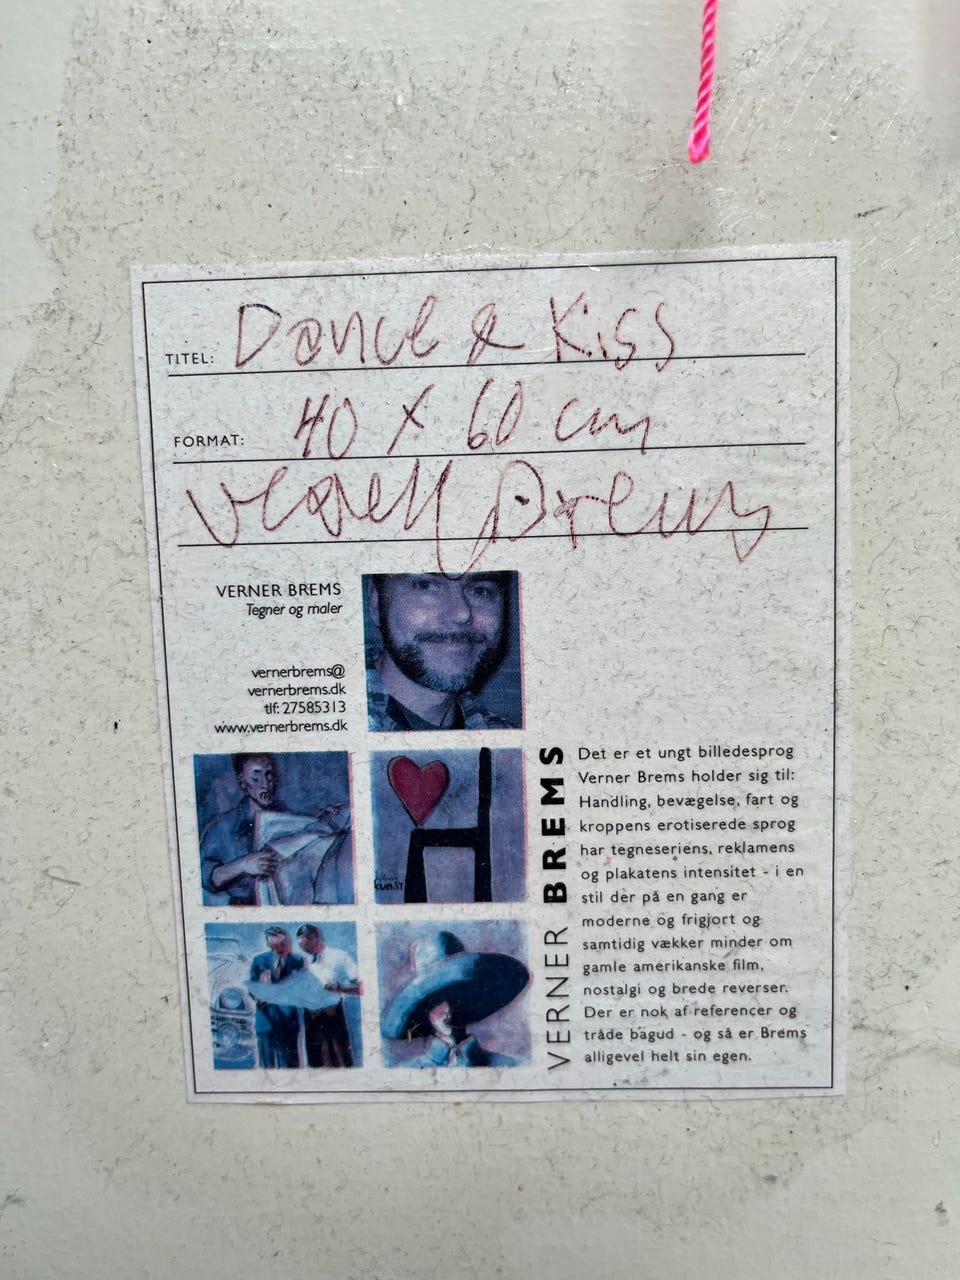 TITEL: Dance & Kiss
FORMAT: 40 x 60 cm
Verner Brems
VERNER BREMS
Tegner og maler
vernerbrems@
vernerbrems.dk
tlf: 27585313
www.vernerbrems.dk
KUNST
VERNER BREMS
Det er et ungt billedesprog
Verner Brems holder sig til:
Handling, bevægelse, fart og
kroppens erotiserede sprog
har tegneseriens, reklamens
og plakatens intensitet - i en
stil der på en gang er
moderne og frigjort og
samtidig vækker minder om
gamle amerikanske film,
nostalgi og brede reverser.
Der er nok af referencer og
tråde bagud - og så er Brems
alligevel helt sin egen.